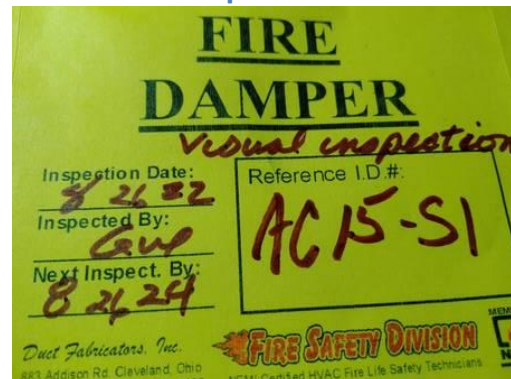 FIRE
DAMPER
Visual inspection
Inspection Date:
8 26
Inspected By:
Next Inspect. By:
8 26 24
Reference I.D.#:
AC 15-S1
Duct Fabricators, Inc.
883 Addison Rd. Cleveland, Ohio
FIRE SAFETY DIVISION
Certified HVAC Fire Life Safety Technicians